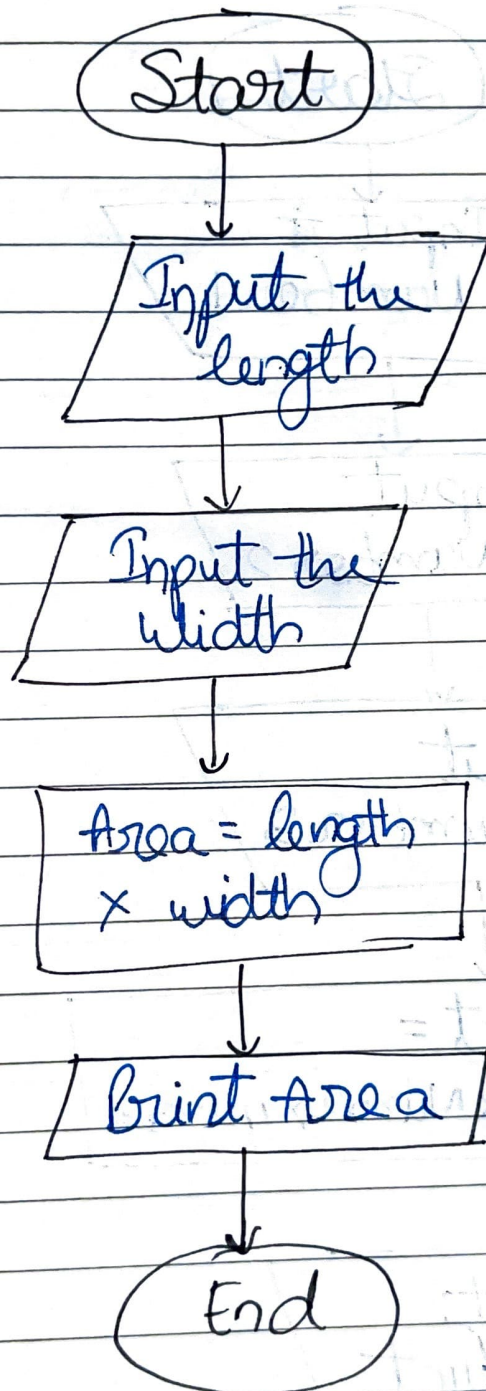 Start
Input the
length
Input the
width
Area = length
× width
Print Area
End